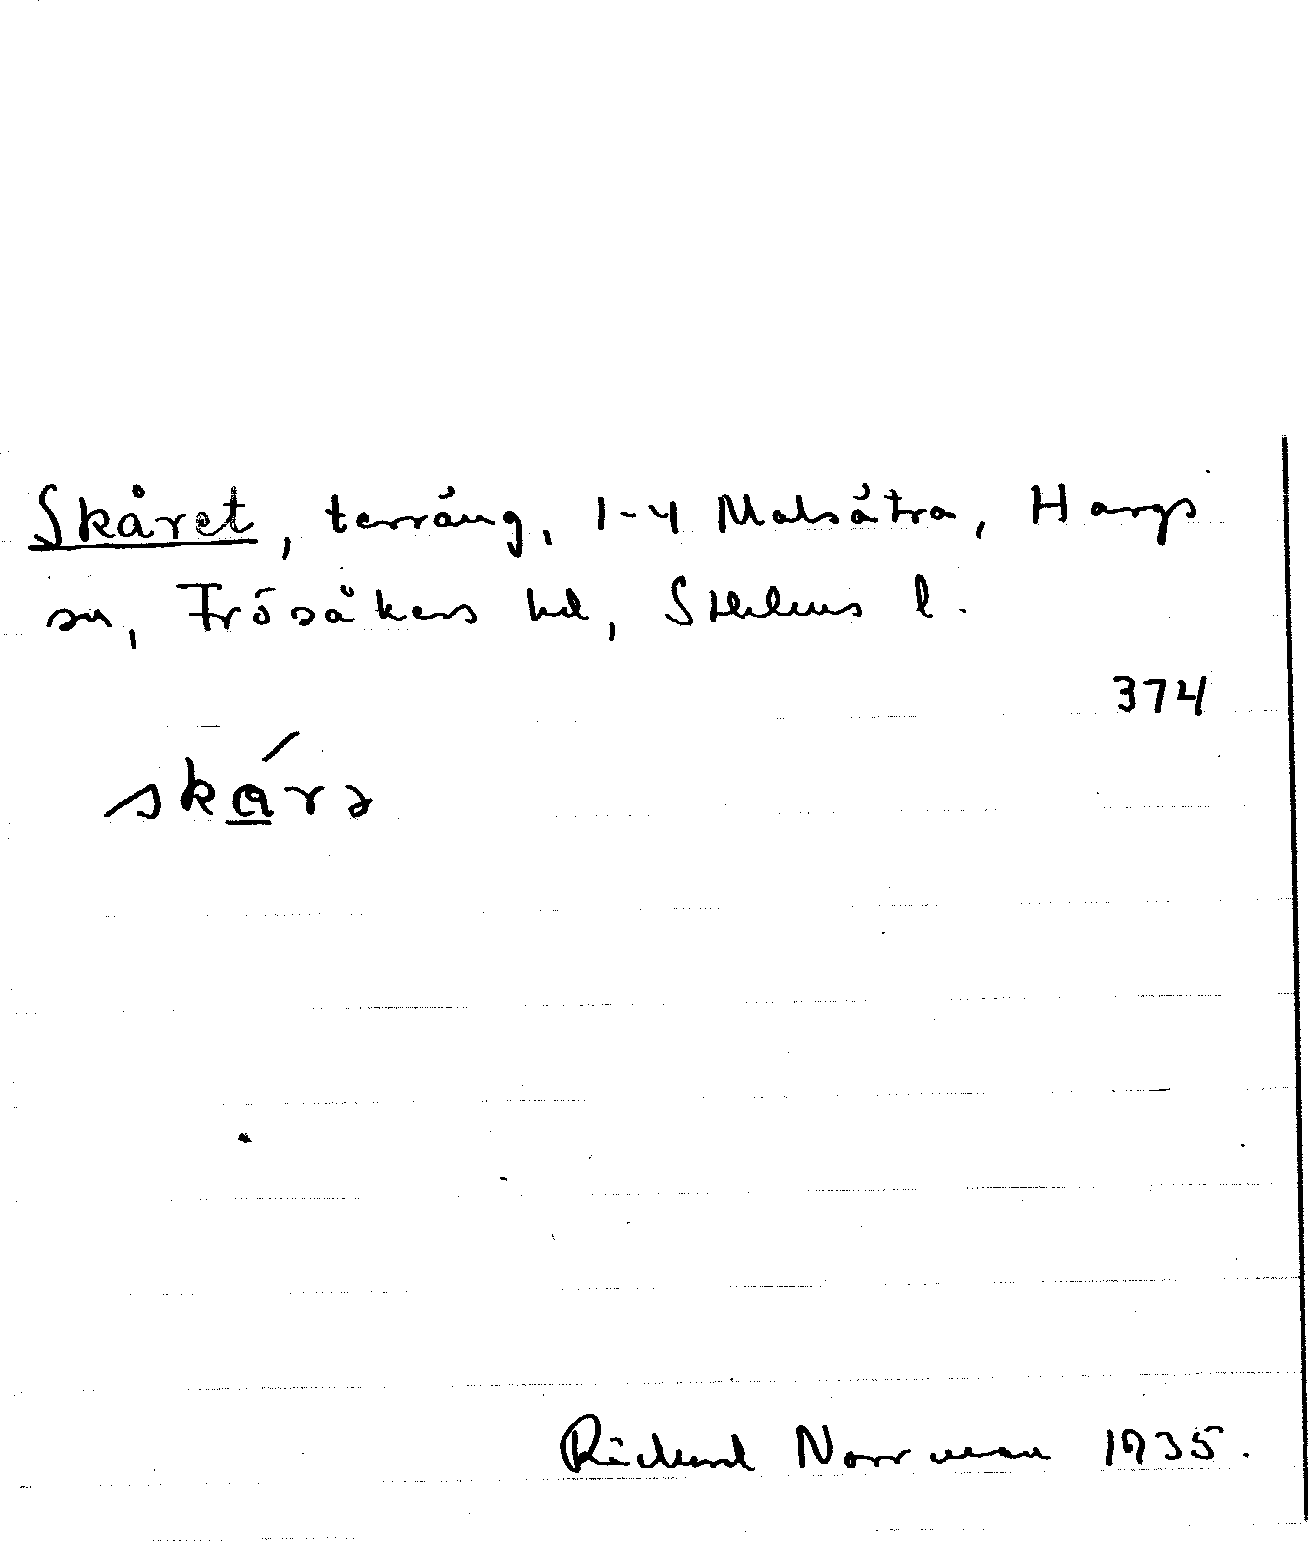 Skåret, terräng, 1-4 Malsätra, Hargs
sn, Frösåkers hd, Sthlms l.
374
skárə
Rickard Norrman 1935.